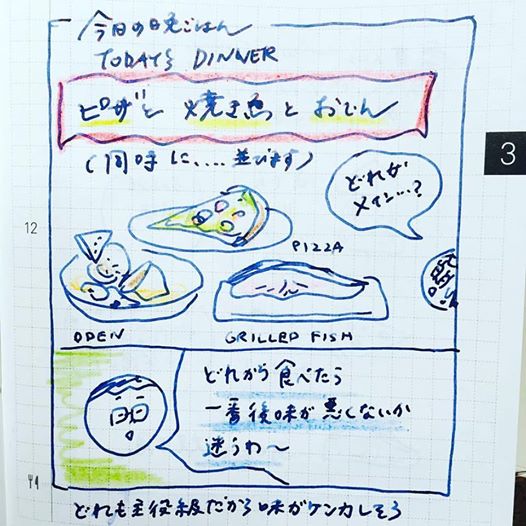 今日の晩ごはん
TODAY'S DINNER
ピザと 焼き魚と おでん
(同時に、... 並びます)
3
どれが
メイン…?
12
PIZZA
ODEN
GRILLED FISH
どれから食べたら
一番後味が悪くないか
迷うわ〜
どれも主役級だから味がケンカしそう